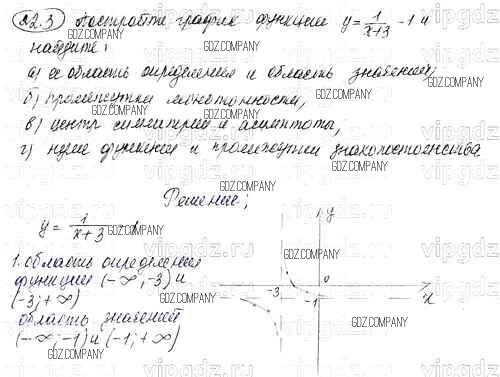 22.3 Постройте график функции y = 1/(x+3) - 1 и
найдите:
а) ее область определения и область значений;
б) промежутки монотонности;
в) центр симметрии и асимптоты;
г) нули функции и промежутки знакопостоянства.
Решение:
y = 1/(x+3) - 1
1. область определения
функции (-∞; -3) и
(-3; +∞)
область значений
(-∞; -1) и (-1; +∞)
y
0
-3
-1
x
GDZ.COMPANY
GDZ.COMPANY
GDZ.COMPANY
GDZ.COMPANY
GDZ.COMPANY
GDZ.COMPANY
GDZ.COMPANY
GDZ.COMPANY
GDZ.COMPANY
GDZ.COMPANY
GDZ.COMPANY
GDZ.COMPANY
vipgdz.ru